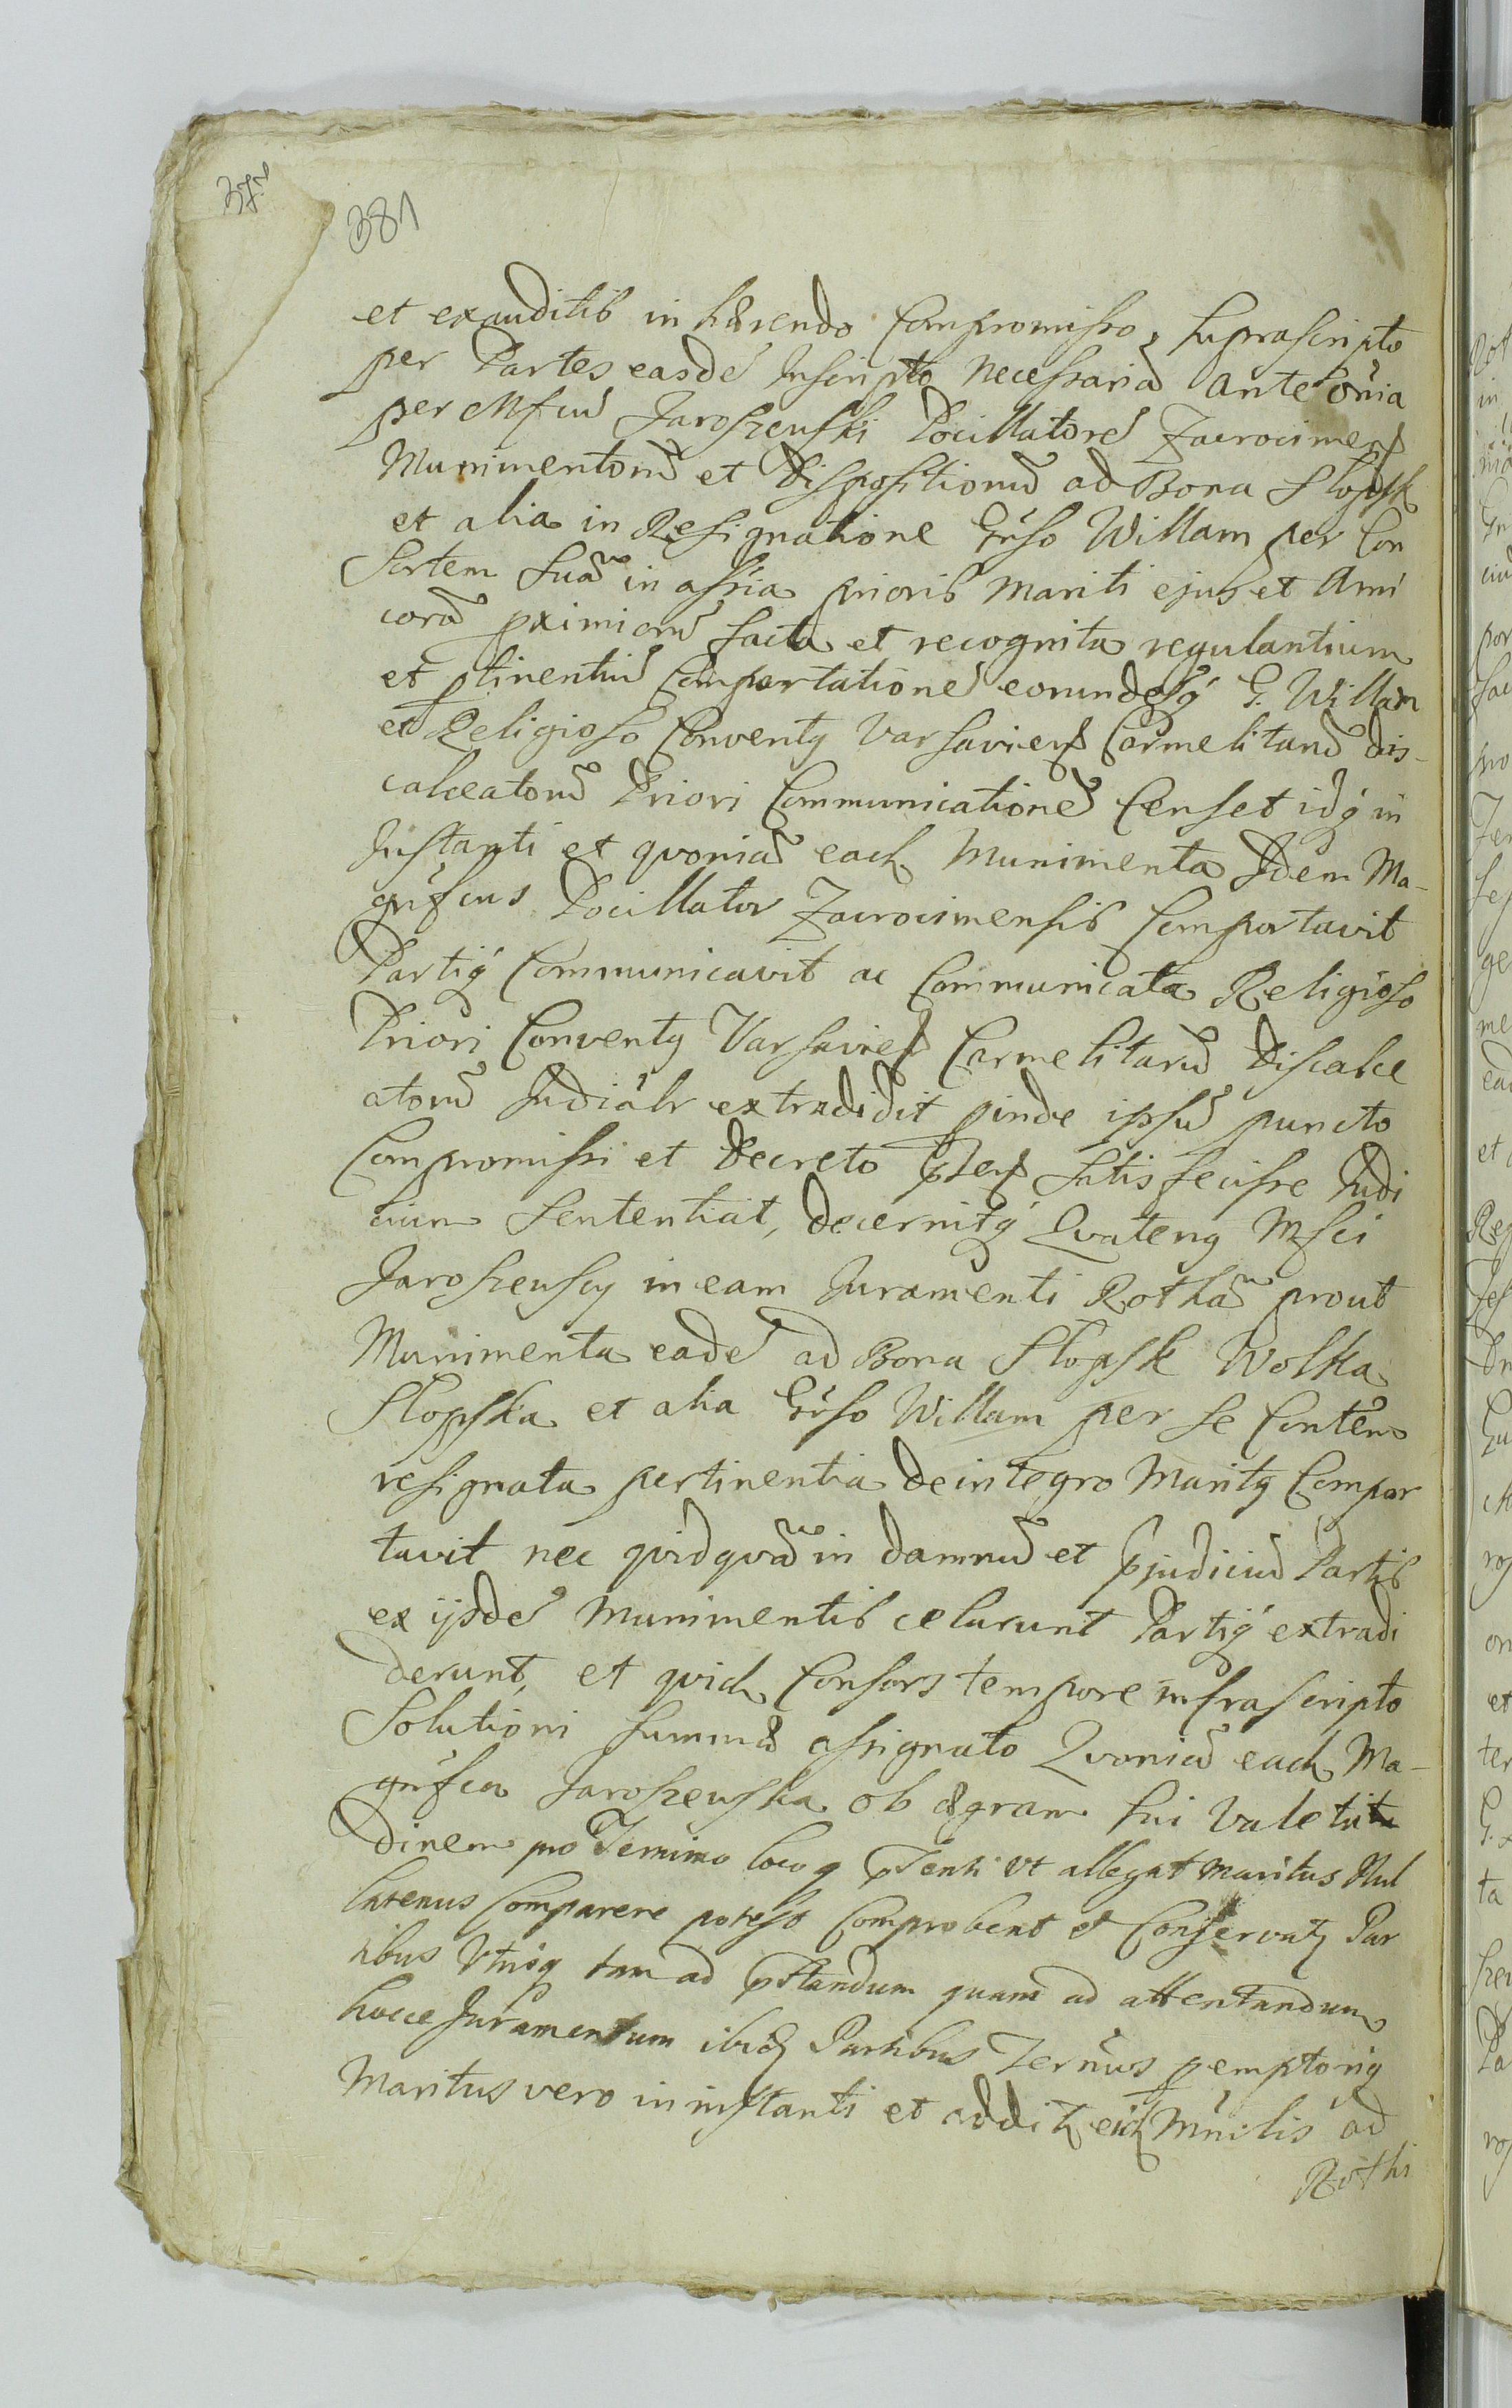 37v
381
et exauditis in hærendo Compromisso, suprascripto
per Partes easdē Inscripto Necessariā Ante oīnia
per Mfcū Jaroszewski Pocillatorē Zacrocimens
Munimentorū et Dispositionū ad Bona Słopsk
et alia in Resignatione Gn̄so Willam per Con
Sortem Suā in assīa prioris Mariti ejus et Ami
corū pximiorū facta et recognita regulantium
et ptinentiū Comportationē eorundēq́ G. Willam
et Religioso Conventq Varsaviens Carmelitarū dis-
calceatorū Priori Communicationē Censet idq́ in
Instanti et qvoniā eadē Munimenta Idem Ma-
gnīfcus Pocillator Zacrocimensis Comportavit
Partiq́ Communicavit ac Communicata Religioso
Priori Conventq Varsaviens Carmelitarū Discalce
atorū Judiālr extradidit pinde ipsū puncto
Compromissi et Decreto pn̄s Satisfecisse Judi
cium Sententiat, decernitq́ Qvatenq Mfci
Jaroszewscy in eam Juramenti Rothā prout
Munimenta eadē ad Bona Słopsk Wolka
Słopska et alia Gn̄so Willam per se Conten
resignata pertinentia de integro Maritq Compor
tavit nec qvidqvā in damnū et pjudiciū Partis
ex ijsdē Munimentis celarunt Partiq́ extradi
derunt, et qvidē Consors tempore infrascripto
Solutioni Summæ assignato Qvoniā eadē Ma-
gnīfca Jaroszewska ob ægram sui Valetu
dinem pro Termino locoq pn̄ti Vt allegat Maritus Nul
latenus Comparere potest Comprobent et Conservatz Par
tibus Vtrisq tam ad pstandum quam ad attentandum
hocce Juramentum ibidē Partibus Terīnus pemptoriq
Maritus vero in instanti et additz eidē Mn̄ilis ad
Rothā